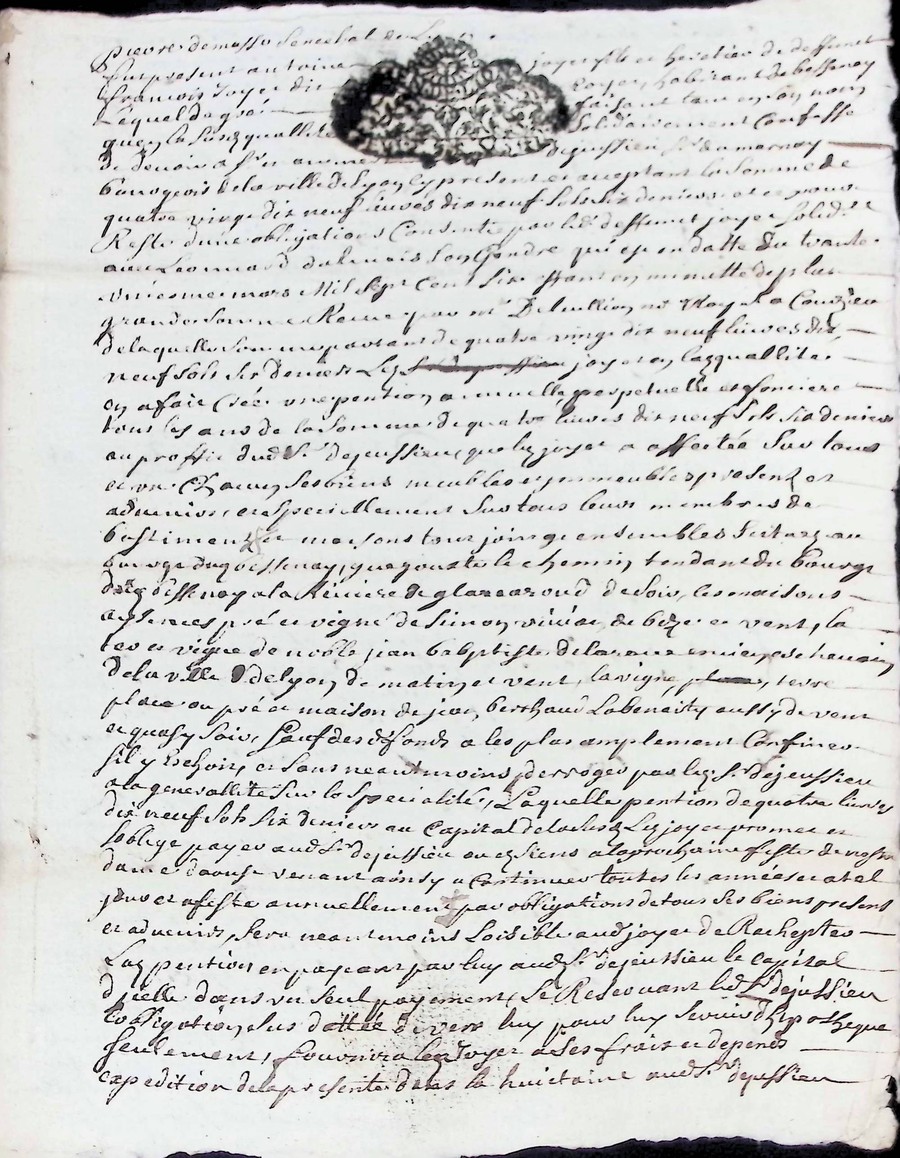 Pierre demasso senechal de L
fut present antoine joyer fils et heretier de deffunct
francois joyer dit royer, habitant de bessenay
Lequel de gré faisant tan en son nom
quen la susd quallité solidairement Confesse
de devoir a sr dejussieu sr. du marnay
bourgeois de la ville de Lyon cy present et acceptant la somme de
quatre vingt dix neuf livres dix neuf sols six deniers et ce pour
Reste d'une obligations Consentie par led deffunct joyer solid.t
avec Leonnard dalmais son Gendre qui est en datte du trante
uniesme mars Mil sept Cent six estant en minutte de plus
grande somme Receue par me not Royal a Courzieu
de laquelle somme partant de quatre vingt dix neuf livres dix
neuf sols six deniers Led joyer en lad quallités
en a fait Créé une pention annuelle perpetuelle et fonciere
tous les ans de la somme de quatre livres dix neuf sols six deniers
au proffit dud Sr dejeussieu, que led joyer a affectée sur tous
et un Chacun ses biens meubles et immeubles present et
advenir, et speciellement sur tous leurs membres de
bastiment et maisons tous joingt ensembles scituez au
bourgt dud bessenay, que jouxte le chemin tendant du bourgt
dud bessenay a la Riviere de glanaroud de soir, les maisons
aysances pré et vigne de Simon viviar de bize et vent, la
terre et vigne de noble jean baptiste delaroue ancien eschevain
de la ville de Lyon de matin et vent, la vigne, terre
place ou pré et maison de jean berthaud Labenaity aussy de vent
et quasy soir, sauf des dts fonds a les plus amplement Confiner
sil y Eschoit, et sans neantmoins desroger par led Sr dejeussieu
a la generallité sur la specialité, Laquelle pention de quatre livres
dix neuf sols six deniers au Capital de lad Led joyer promet et
soblige payer aud Sr dejussieu ou es siens a la prochaine feste de nostre
dame daoust venant ainsy a Continuer toutes les années a tel
jour et feste annuellement par obligations de tous ses biens present
et advenir, sera neantmoins Loisible aud joyer de Rachepter
Lad pention en payant par luy aud Sr dejeussieu le capital
dycelle dans un seul payement, se Reservant led Sr dejussieu
Lobligation plus dattée devers luy pour luy servir dhipotheque
seulement, fournira led Joyer a ses frais et depens
expedition de la presente dans la huictaine aud Sr dejussieu